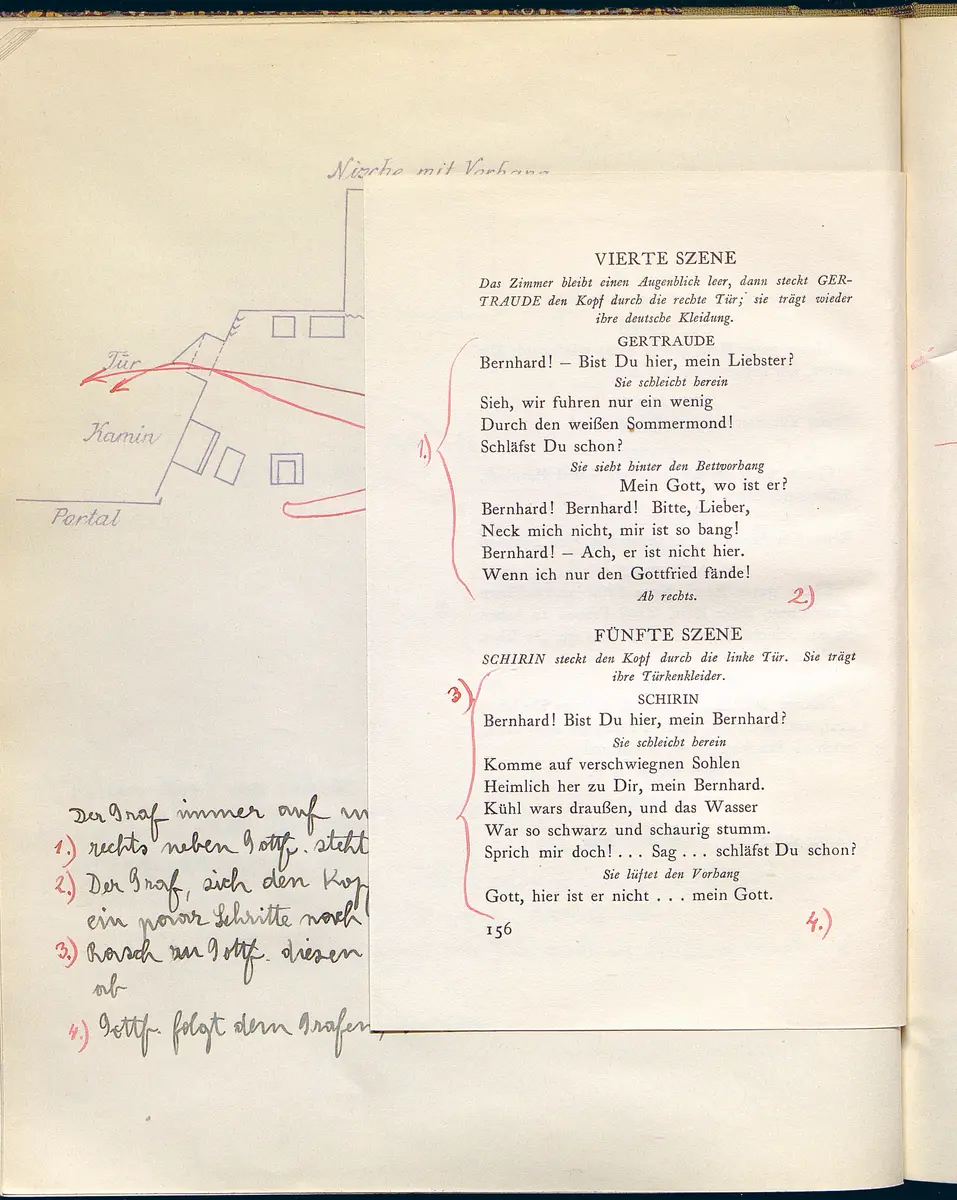 Nische mit Vorhang
Tür
Kamin
Portal
VIERTE SZENE
Das Zimmer bleibt einen Augenblick leer, dann steckt GER-
TRAUDE den Kopf durch die rechte Tür; sie trägt wieder
ihre deutsche Kleidung.
GERTRAUDE
Bernhard! – Bist Du hier, mein Liebster?
Sie schleicht herein
Sieh, wir fuhren nur ein wenig
Durch den weißen Sommermond!
1.) Schläfst Du schon?
Sie sieht hinter den Bettvorhang
Mein Gott, wo ist er?
Bernhard! Bernhard! Bitte, Lieber,
Neck mich nicht, mir ist so bang!
Bernhard! – Ach, er ist nicht hier.
Wenn ich nur den Gottfried fände!
Ab rechts. 2.)
FÜNFTE SZENE
SCHIRIN steckt den Kopf durch die linke Tür. Sie trägt
ihre Türkenkleider.
3.) SCHIRIN
Bernhard! Bist Du hier, mein Bernhard?
Sie schleicht herein
Komme auf verschwiegnen Sohlen
Heimlich her zu Dir, mein Bernhard.
Kühl wars draußen, und das Wasser
War so schwarz und schaurig stumm.
Sprich mir doch! . . . Sag . . . schläfst Du schon?
Sie lüftet den Vorhang
Gott, hier ist er nicht . . . mein Gott.
156 4.)
Der Graf immer auf
1.) rechts neben Gottf. steht
2.) Der Graf, sich den Kop
ein paar Schritte nach
3.) Rasch zu Gottf. diesen
ab
4.) Gottf. folgt dem Grafen,